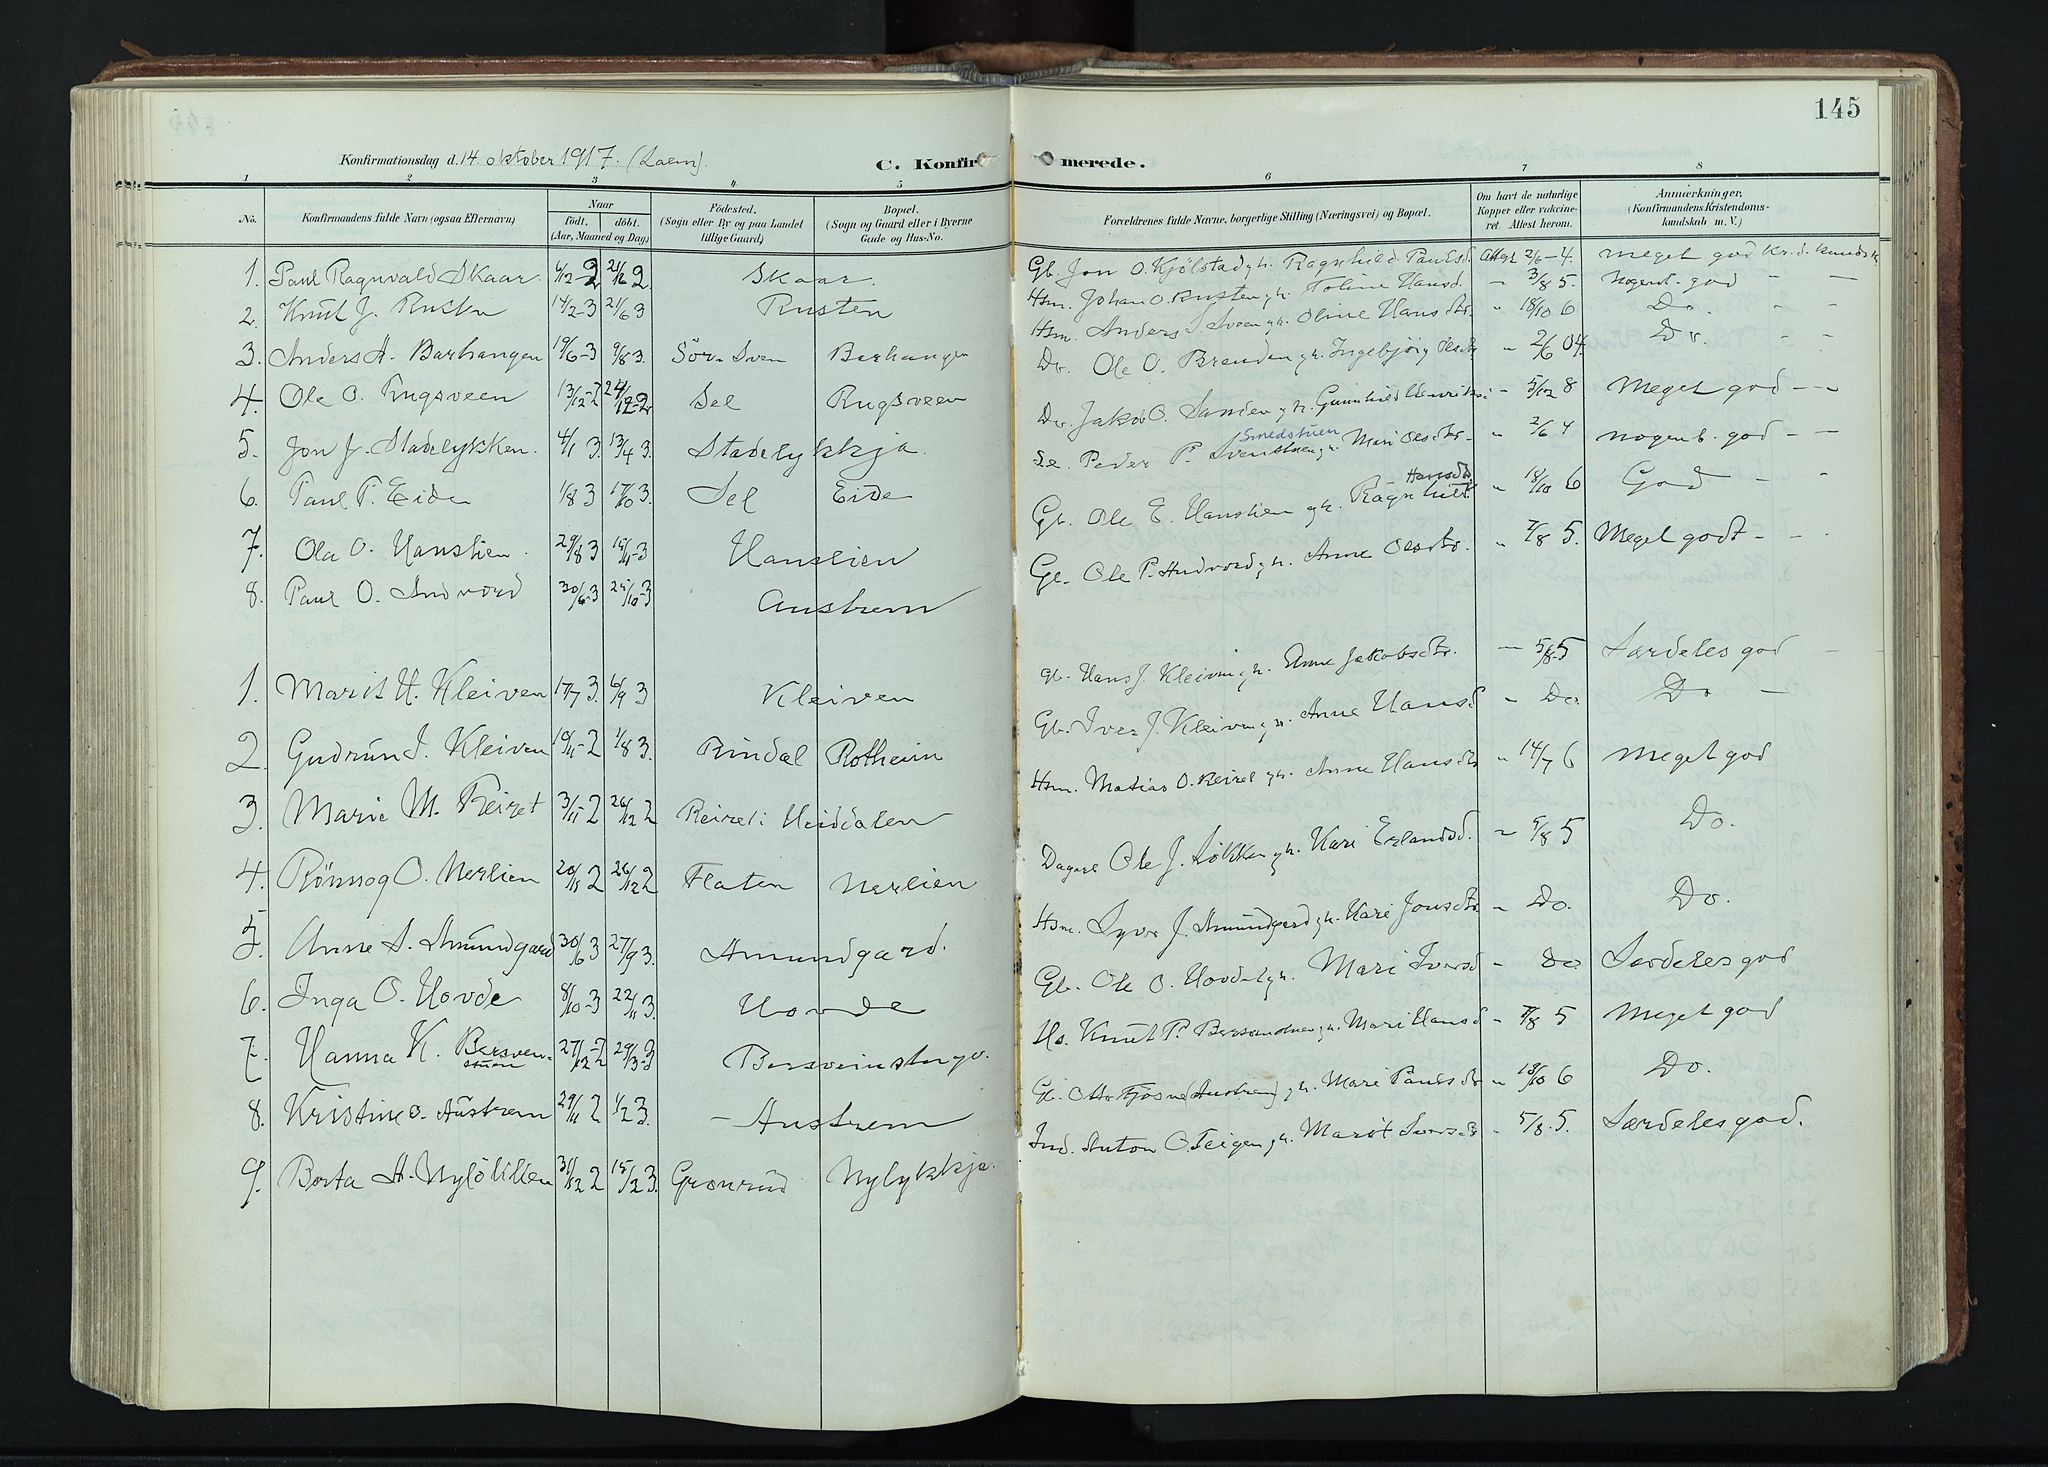 145
Konfirmationsdag d. 14. oktober 1917.
C. Konfirmerede.
1 2 3 4 5 6 7 8
No.
Konfirmandens fulde Navn (ogsaa Efternavn)
Naar
født. døbt.
(Aar, Maaned og Dag)
Fødested.
(Sogn eller By og paa Landet
tillige Gaard)
Bopæl.
(Sogn og Gaard eller i Byerne
Gade og Hus-No.
Forældrenes fulde Navne, borgerlige Stilling (Næringsvei) og Bopæl.
Om havt de naturlige
Kopper eller vaccine-
ret Attest herom.
Anmærkninger.
(Konfirmandens Kristendoms-
kundskab m. V.)
1. Paul Ragnvald Skaar Skaar Gb. Jon O. Kjølstad g. h. Ragnhild Paulsd. Attest 2/6-4. meget god Kr.d. kundsk.
2. Knut J. Rusten 14/2-3 21/6 3 Rusten Hsm. Johan O. Rusten g. h. Toline Hansd. " 3/8 5. Nogenl. god
3. Anders A. Barhaugen 19/6-3 9/8 3. Barhaugen Hsm. Anders Sveen g. h. Oline Hansdtr. " 18/10 6 Do.
4. Ole O. Rugsveen 13/12-2 Sel Rugsveen Do. Ole O. Brenden g. h. Ingebjørg Olsdtr " 2/6 04. Do.
5. Jon J. Stadeløkken. 4/1 3. 13/4 3. Stadelykkja Do. Jakob O. Sanden g. h. Gunhild " 5/12 8 Meget god
6. Paul P. Eide 1/8 3 17/10 3. Sel Eide Peder P. Smedstuen g. h. Mari Olsdtr. " 2/6 4 nogenl. god
7. Ola O. Hanslien 29/8 3 15/11-3 Hanslien Gb. Ole E. Hanslien g. h. Ragnhild Hansdtr. " 18/10 6 God
8. Paul O. 25/10-3 Austrem Ge. Ole P. g. h. Anne Olsdtr. " 7/8 5. Meget godt
1. Marit H. Kleiven 17/7 3. 6/9 3 Kleiven gb. Hans J. Kleiven g. h. Anne Jakobsdtr. 5/8-5 Særdeles god
2. Gudrun I. Kleiven 19/11-2 1/8 3. Rindal Rotheim Gb. Iver J. Kleiven g. h. Anne Hansd " Do Do
3. Marie M. Reiret 3/11-2 26/12 2 Reiret i Heidalen Hsm. Matias O. Reiret g. h. Anne Hansdtr " 14/7 6 meget god
4. Rönnog O. Nerlien 20/11 2 26/12 2 Flaten Nerlien Ole J. Løkken g. h. Kari Erlandsd. " 5/8 5 Do.
5. Anne S. Amundgard 30/6 3 27/9 3. Amundgard. Hsm. Syver J. Amundgard g. h. Kari Jonsdtr. " Do. Do.
6. Inga O. Hovde 8/10-3 22/11 3. Hovde Gb. Ole O. Hovde g. h. Mari Iversd " Do Særdeles god
7. Hanna K. Bersven-
stuen 27/12-2 29/3-3 Bersveinstugo. Hs. Knut P. g. h. Mari Hansd " 7/8 5 Meget god
8. Kristine O. Austrem 29/11 2 1/2 3. Austrem Otto Fjosne (Austrem) g. h. Mari Paulsdtr " 18/10 6 Do.
9. Borta A. Nyløkken 31/12 2 15/2 3. Grønrud Nylykkja. Ind. Anton O. Teigen g. h. Marit Iversdtr " 5/8. 5. Særdeles god.